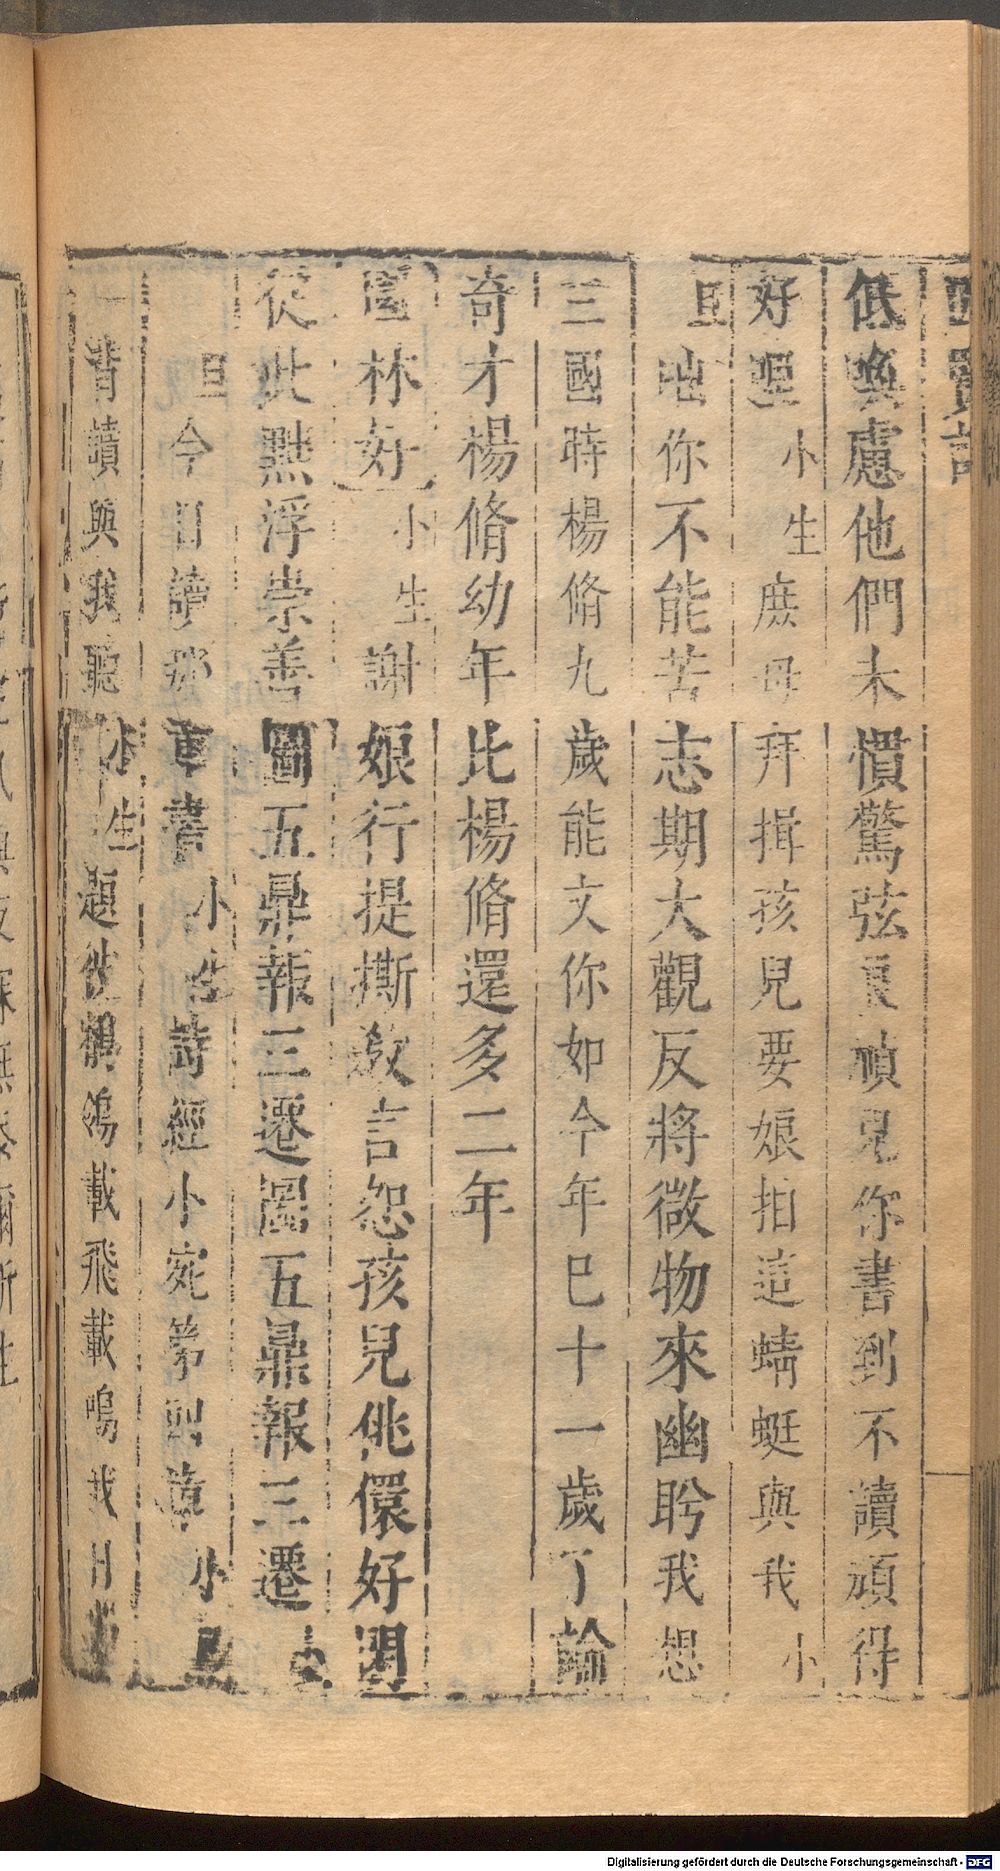 四賢記
低喚慮他們未慣驚弦良禎兒你書到不讀頑得
好哩小生庶母拜揖孩兒要娘拍這蜻蜓與我小
旦咄你不能苦志期大觀反將微物來幽盻我想
三國時楊脩九歲能文你如今年巳十一歲了論
奇才楊脩幼年比楊脩還多二年
園林好小生謝娘行提撕教言怨孩兒佻儇好閒
從此黜浮崇善圖五鼎報三遷圖五鼎報三遷小
旦今日讀那章書小生詩經小宛第四章小旦
背讀與我聽小生題彼鶺鴒載飛載鳴我日
Digitalisierung gefördert durch die Deutsche Forschungsgemeinschaft - DFG